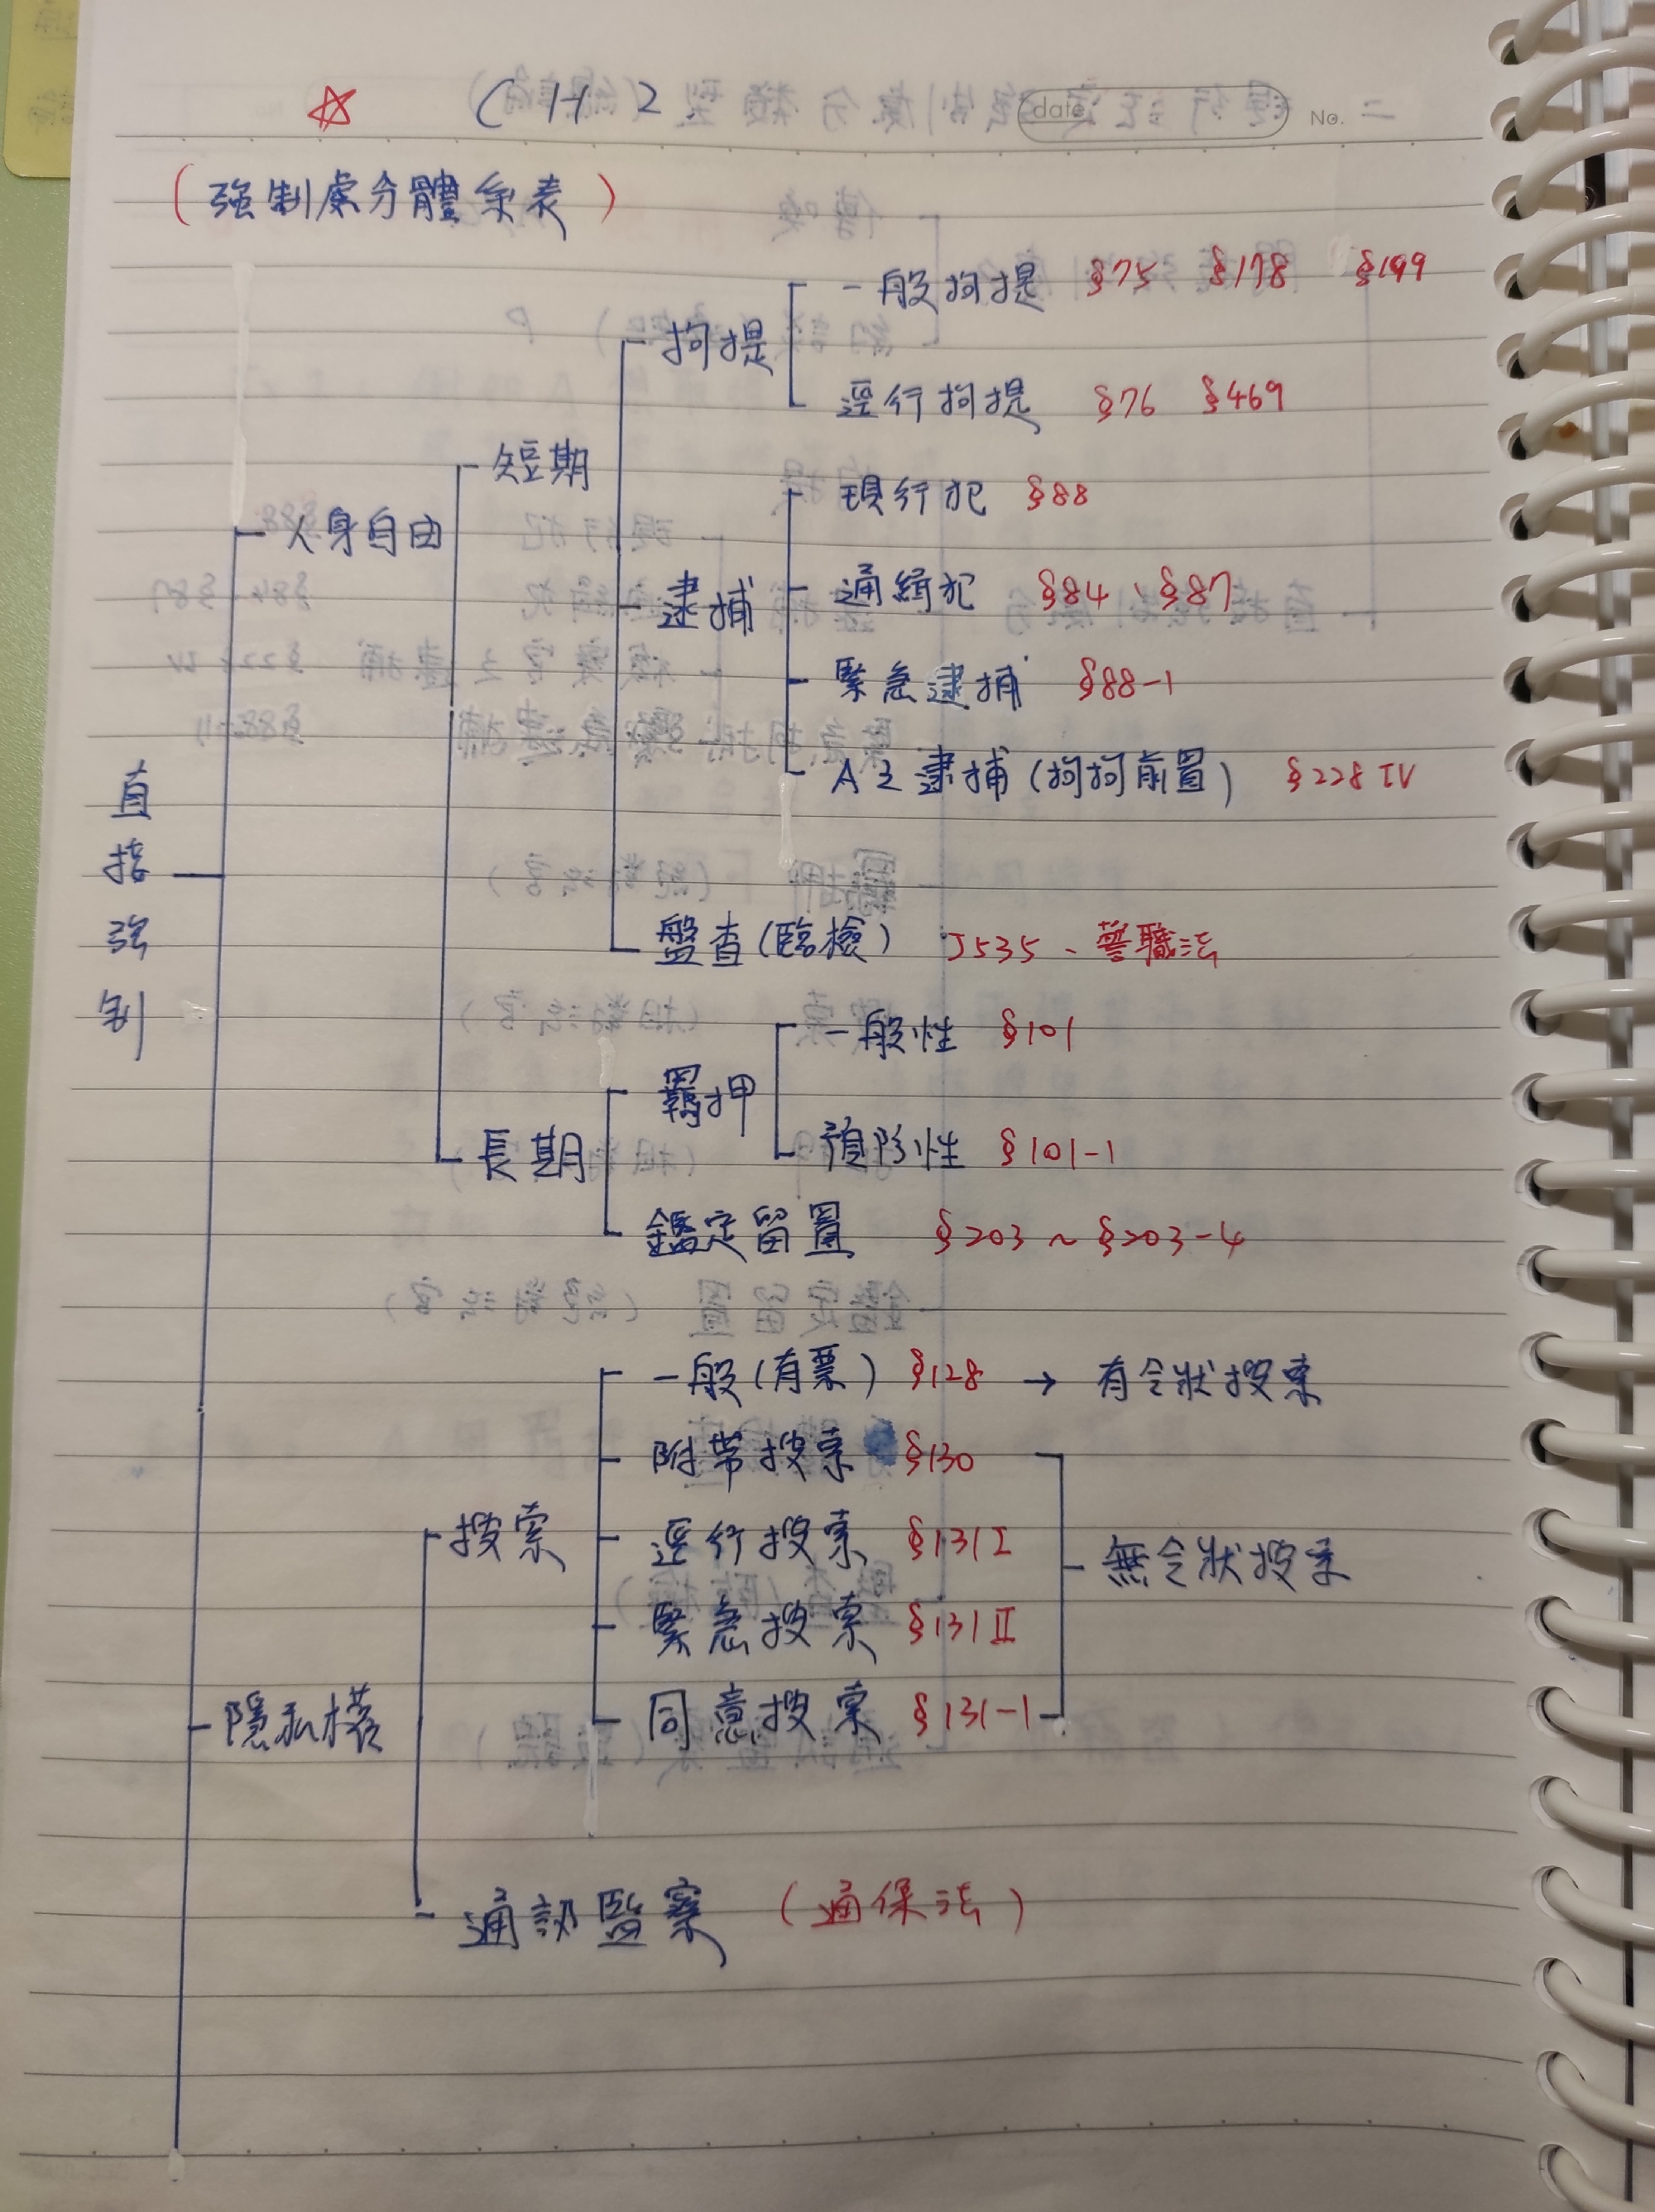 ☆ CH 2
date No.
(強制處分體系表)
一般拘提 §75 §178 §199
拘提
逕行拘提 §76 §469
短期
現行犯 §88
人身自由
通緝犯 §84、§87
逮捕
緊急逮捕 §88-1
A之逮捕(拘拘前置) §228 IV
直接強制
盤查(臨檢) J535、警職法
一般性 §101
羈押
預防性 §101-1
長期
鑑定留置 §203~§203-4
一般(有票) §128 → 有令狀搜索
附帶搜索 §130
搜索
逕行搜索 §131I
無令狀搜索
緊急搜索 §131II
同意搜索 §131-1
隱私權
通訊監察 (通保法)